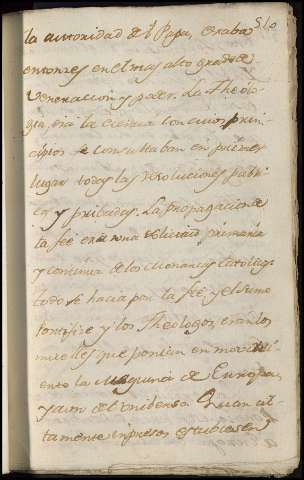 510
la autoridad del Papa, estaba
entonzes en el mas alto grado de
Veneracion y poder. La Theolo-
gia, era la ciencia con cuios prin-
cipios se consultaban en primer
lugar todas las resoluciones publi-
cas y pribadas. La propagacion de
la feé era una solicitud primaria
y continua de los Monarcas Catolicos
todo se hacia por la feé y el sumo
Pontifice y los Theologos, eran los
muelles que ponian en movimi-
ento la Maquina de Europa,
y aun del uniberso. Quan al-
tamente impresos estubiesen